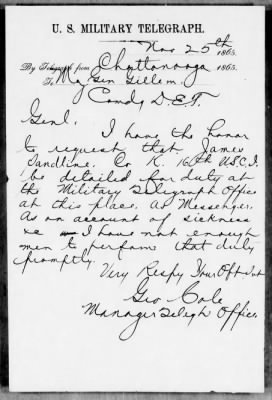 U. S. MILITARY TELEGRAPH.
Nov 25th 1865.
By Telegraph from Chattanooga 1865.
To Maj Gen Gillem.
Comdg D.E.T.
Genl.
I have the honor
to request that James
Sandline. Co K. 16th U.S.C.I.
be detailed for duty at
the Military Telegraph Office
at this place. As Messenger.
As on account of sickness
&c I have not enough
men to perform that duty
promptly.
Very Respy Your Obt Svt
Geo Cole
Manager Telegh Office